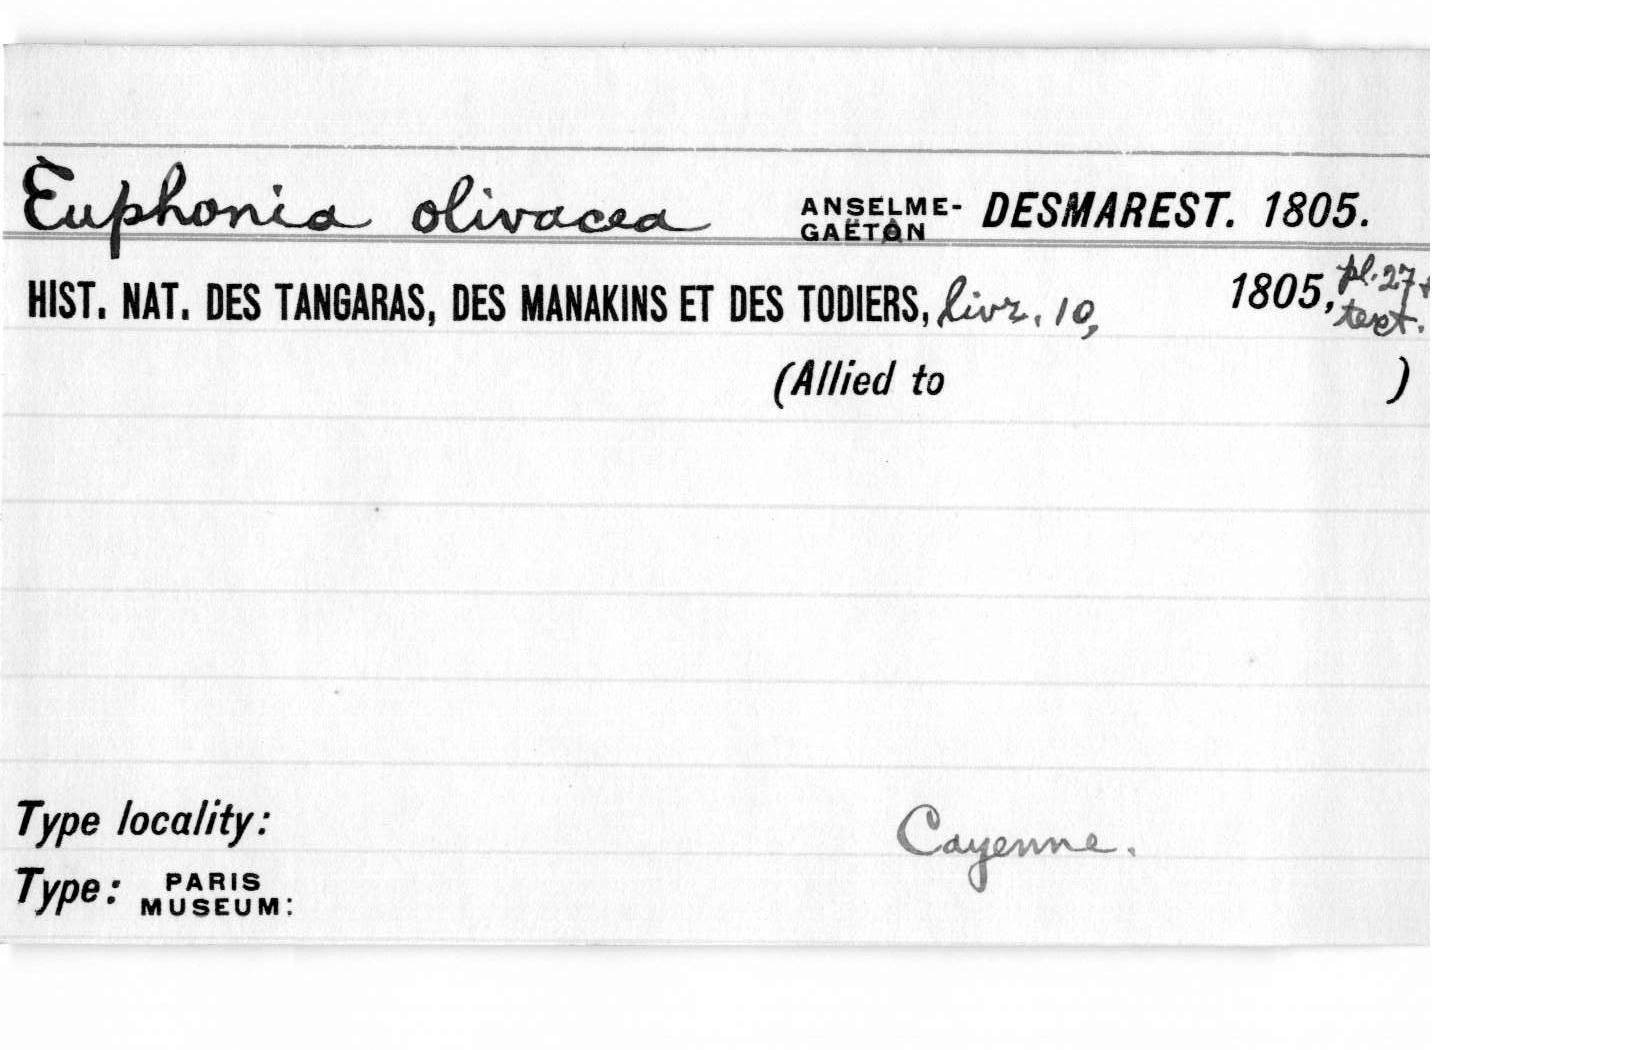 Euphonia olivacea ANSELME-GAËTAN DESMAREST. 1805.
HIST. NAT. DES TANGARAS, DES MANAKINS ET DES TODIERS, livr. 10, 1805, pl. 27 + text.
(Allied to )
Type locality: Cayenne.
Type: PARIS MUSEUM: